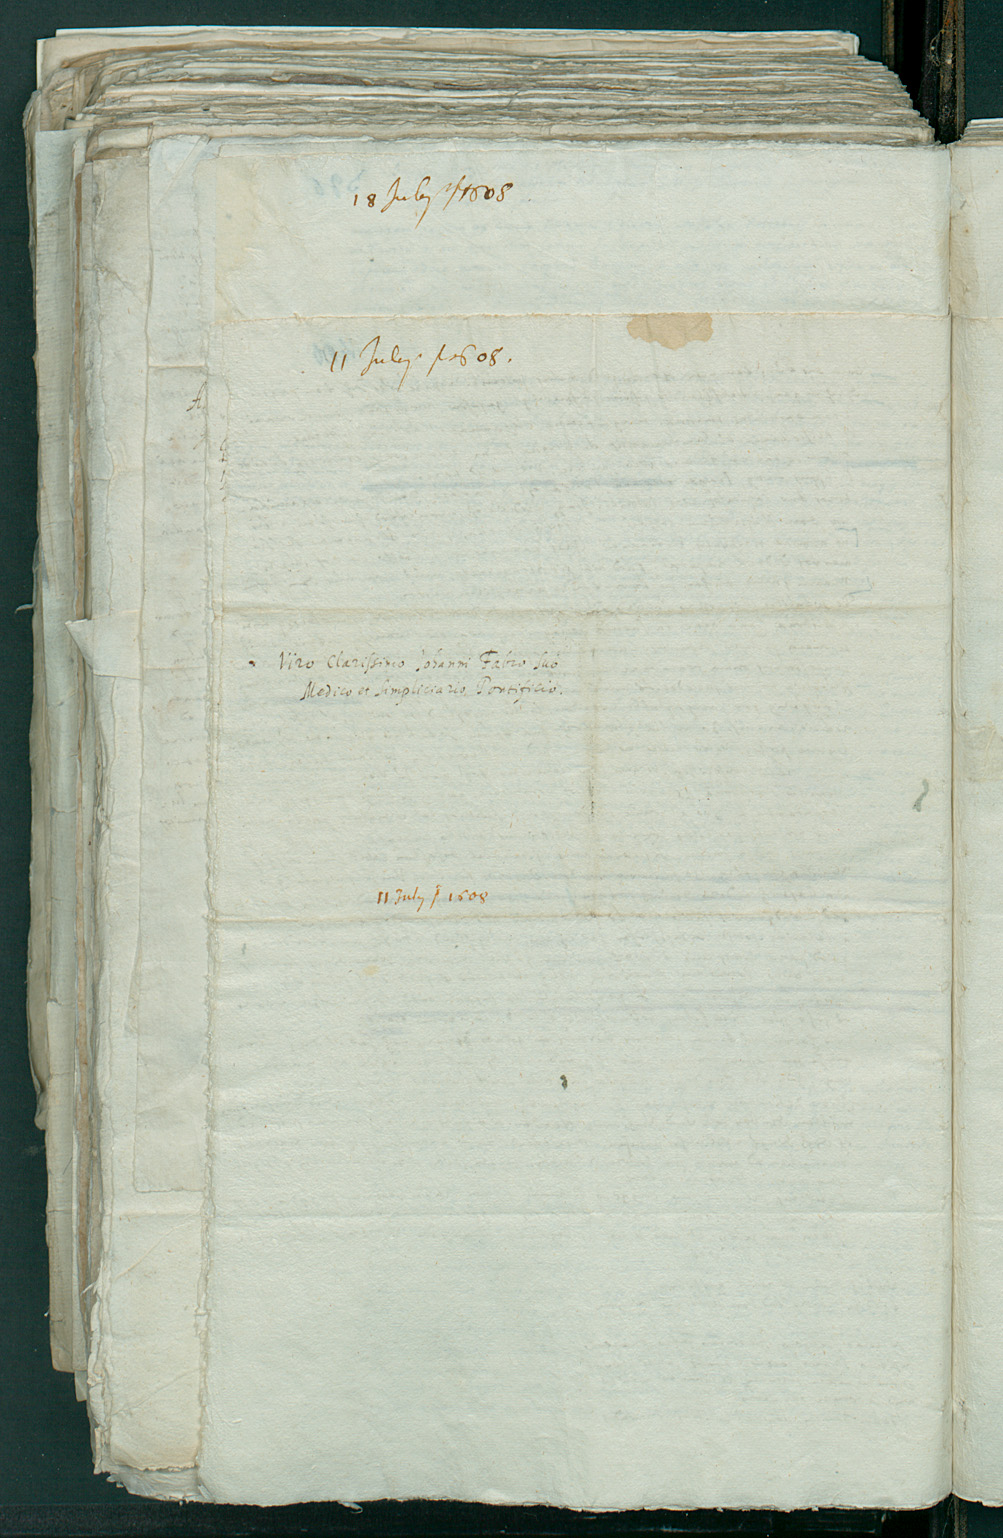 18 July 1608
11 July 1608.
Viro Clarissimo Johanni Fabro Suo
Medico et Simpliciario Pontificio.
11 July 1608